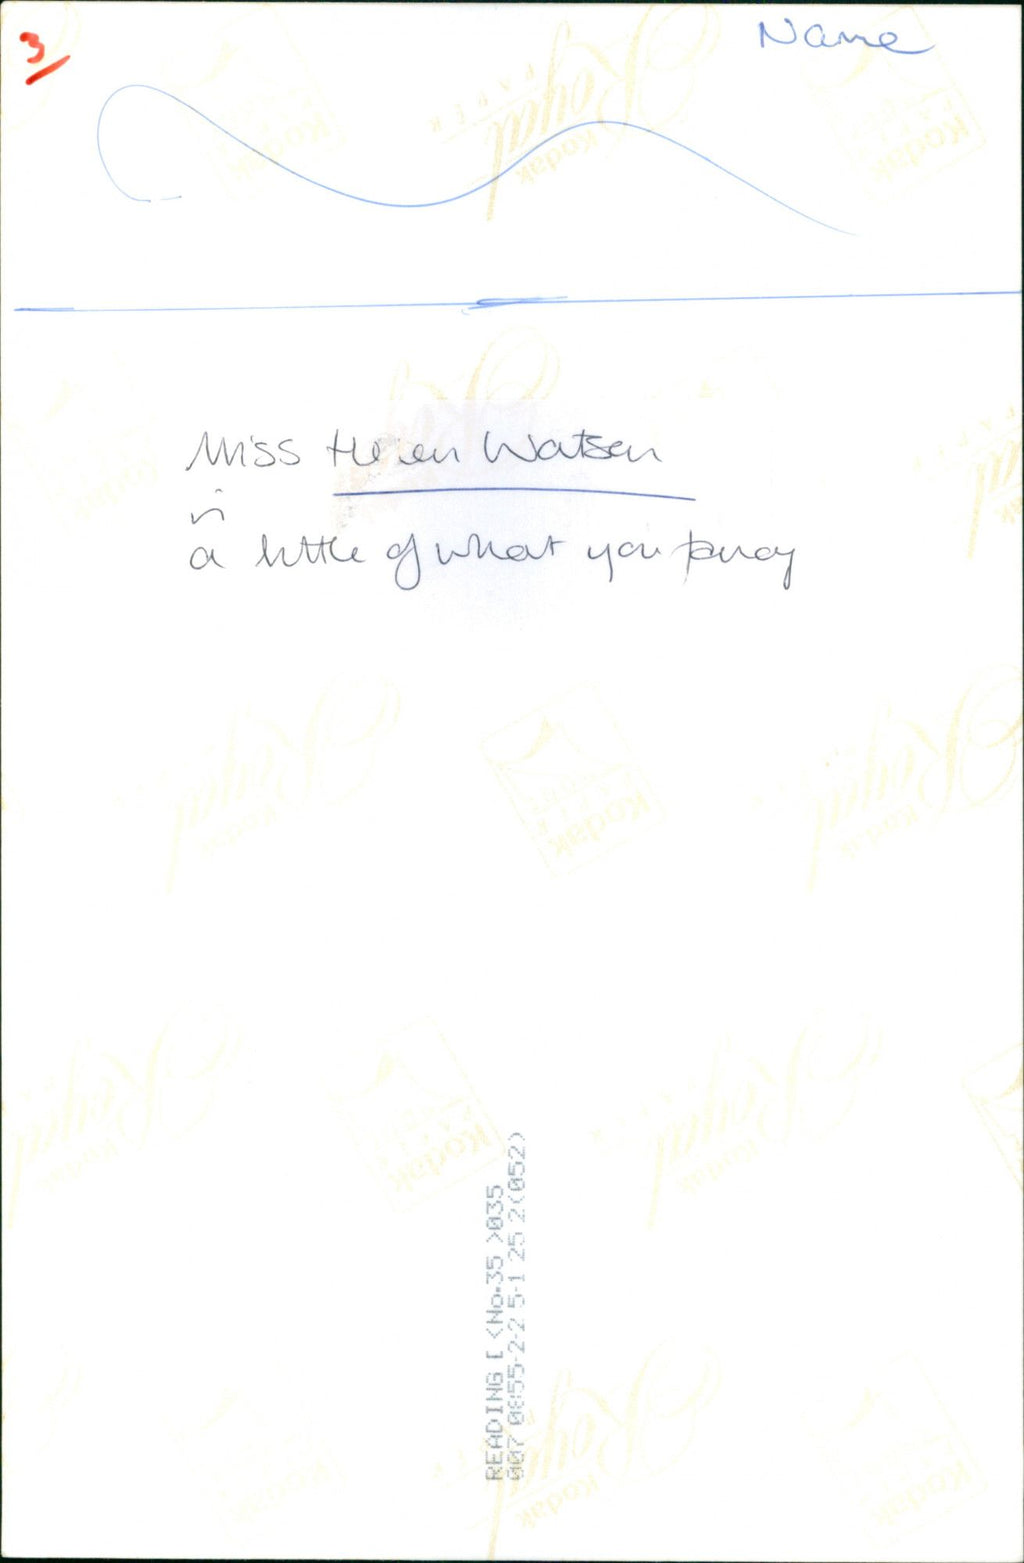 3
Name
Miss Helen Watson
in
a little of what you fancy
READING [ <No.35 >035
007 0855-2-2 5-1 25 2(052)
Kodak
Royal
PAPER